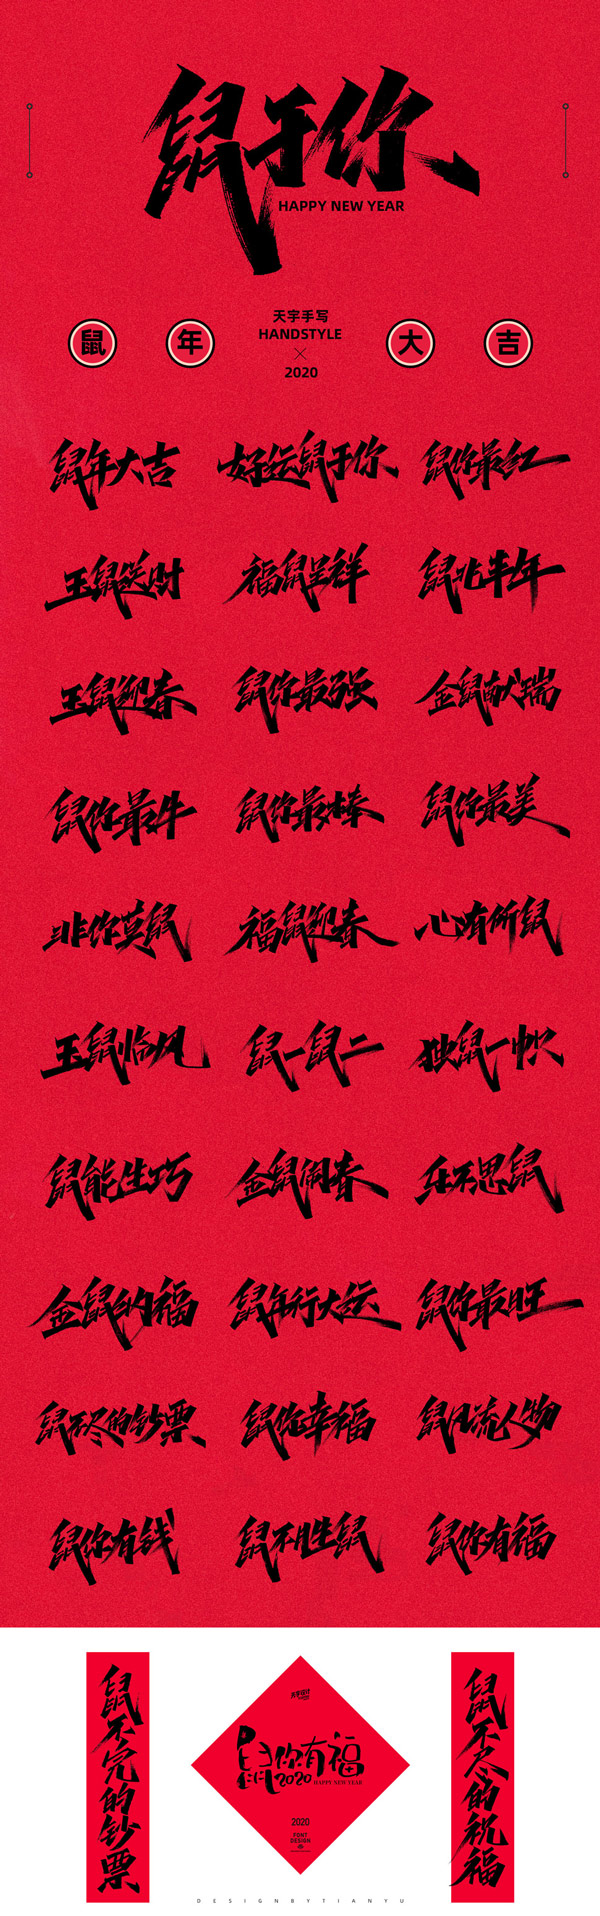 鼠于你
HAPPY NEW YEAR
天宇手写
HANDSTYLE
鼠 年 大 吉
2020
鼠年大吉 好运鼠于你 鼠你最红
玉鼠送财 福鼠呈祥 鼠兆丰年
玉鼠迎春 鼠你最强 金鼠献瑞
鼠你最牛 鼠你最棒 鼠你最美
非你莫鼠 福鼠迎春 心有所鼠
玉鼠临风 鼠一鼠二 独鼠一帜
鼠能生巧 金鼠闹春 乐不思鼠
金鼠纳福 鼠年行大运 鼠你最旺
鼠不尽的钞票 鼠你幸福 鼠风流人物
鼠你有钱 鼠不胜鼠 鼠你有福
鼠不完的钞票
鼠你有福
2020
HAPPY NEW YEAR
2020
FONT
DESIGN
鼠不尽的祝福
DESIGNBYTIANYU